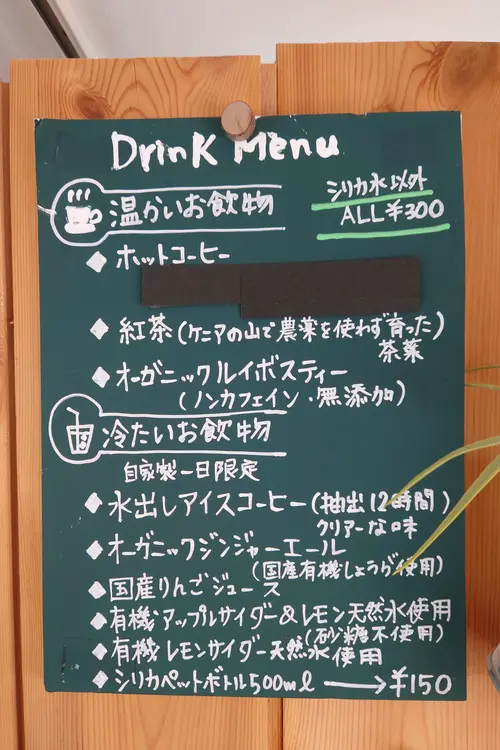 Drink Menu
シリカ水以外
ALL ¥300
温かいお飲物
◆ホットコーヒー
◆紅茶(ケニアの山で農薬を使わず育った)
茶葉
◆オーガニックルイボスティー
(ノンカフェイン・無添加)
冷たいお飲物
自家製一日限定
◆水出しアイスコーヒー(抽出12時間)
クリアーな味
◆オーガニックジンジャーエール
(国産有機しょうが使用)
◆国産りんごジュース
◆有機アップルサイダー&レモン天然水使用
(砂糖不使用)
◆有機レモンサイダー天然水使用
◆シリカペットボトル500ml→¥150